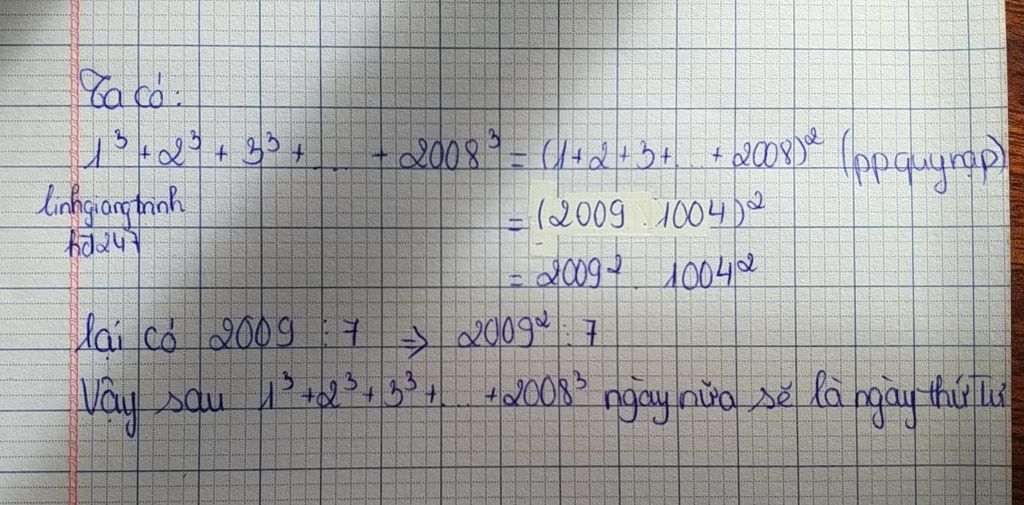 Ta có:
1³ + 2³ + 3³ + ... + 2008³ = (1+2+3+...+2008)² (ppquy nạp)
linhgiangtrinh
hđ247
= (2009 . 1004)²
= 2009² . 1004²
lại có 2009 ⋮ 7 ⇒ 2009² ⋮ 7
Vậy sau 1³+2³+3³+...+2008³ ngày nữa sẽ là ngày thứ Tư